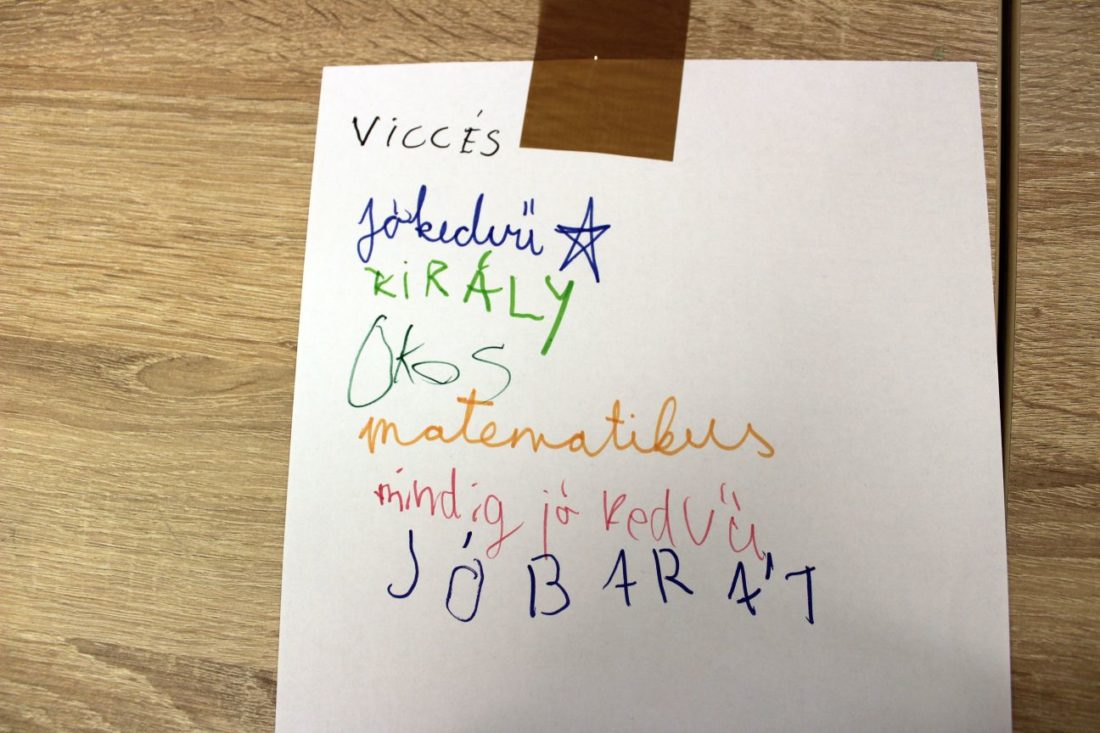 VICCÉS
jókedvű
KIRÁLY
OKOS
matematikus
mindig jó kedvű
JÓ BARÁT